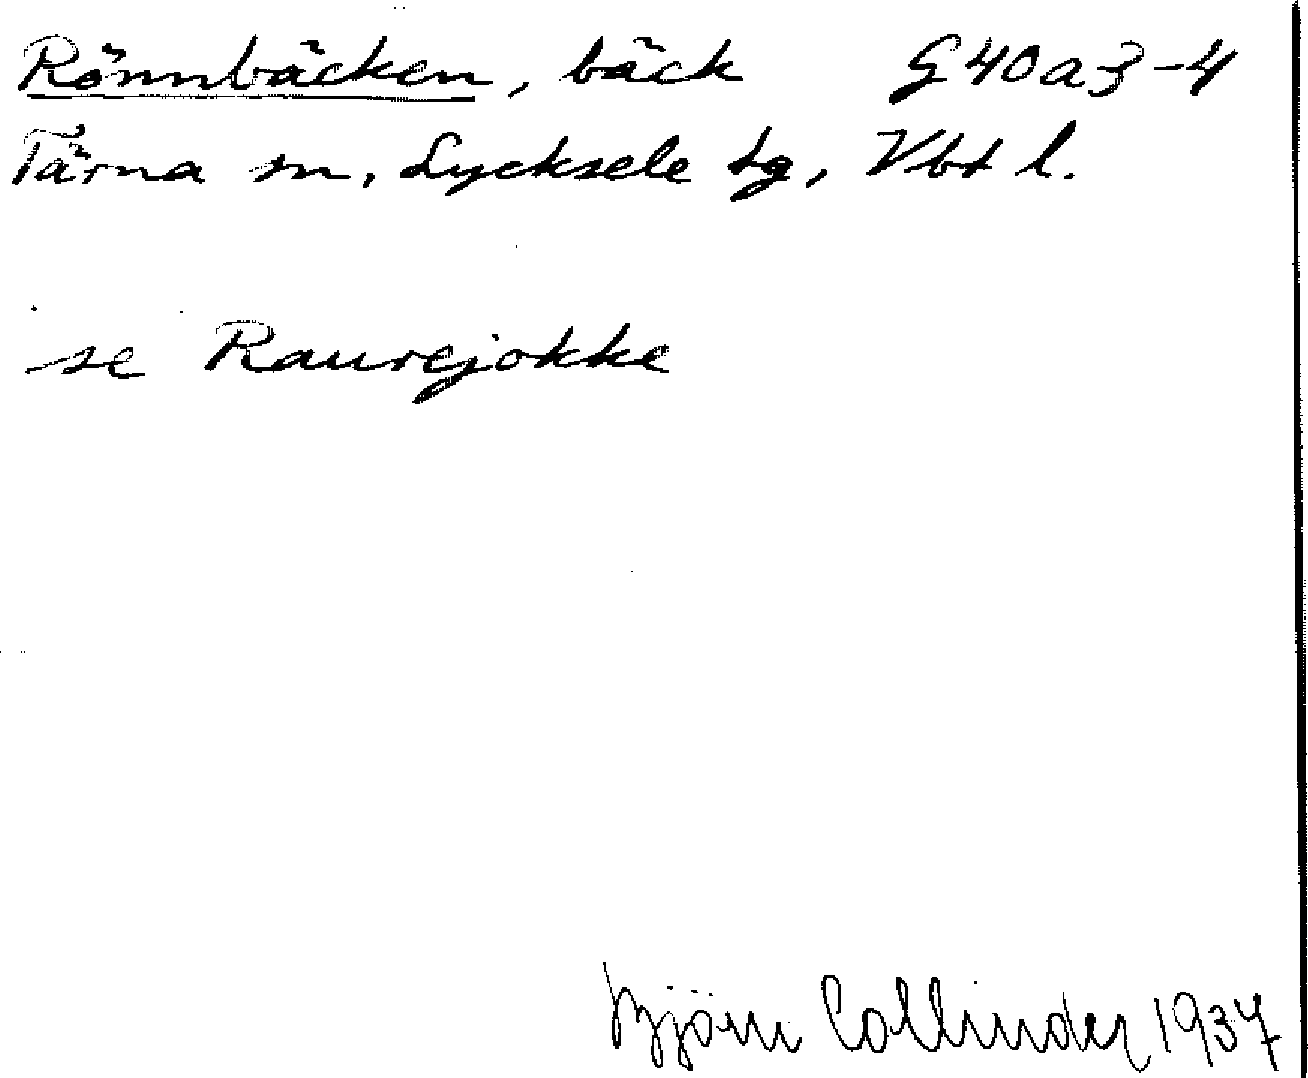 Rönnbäcken, bäck G40a3-4
Tärna sn, Lycksele tg, Vbt l.
se Raurejokke
Björn Collinder 1937